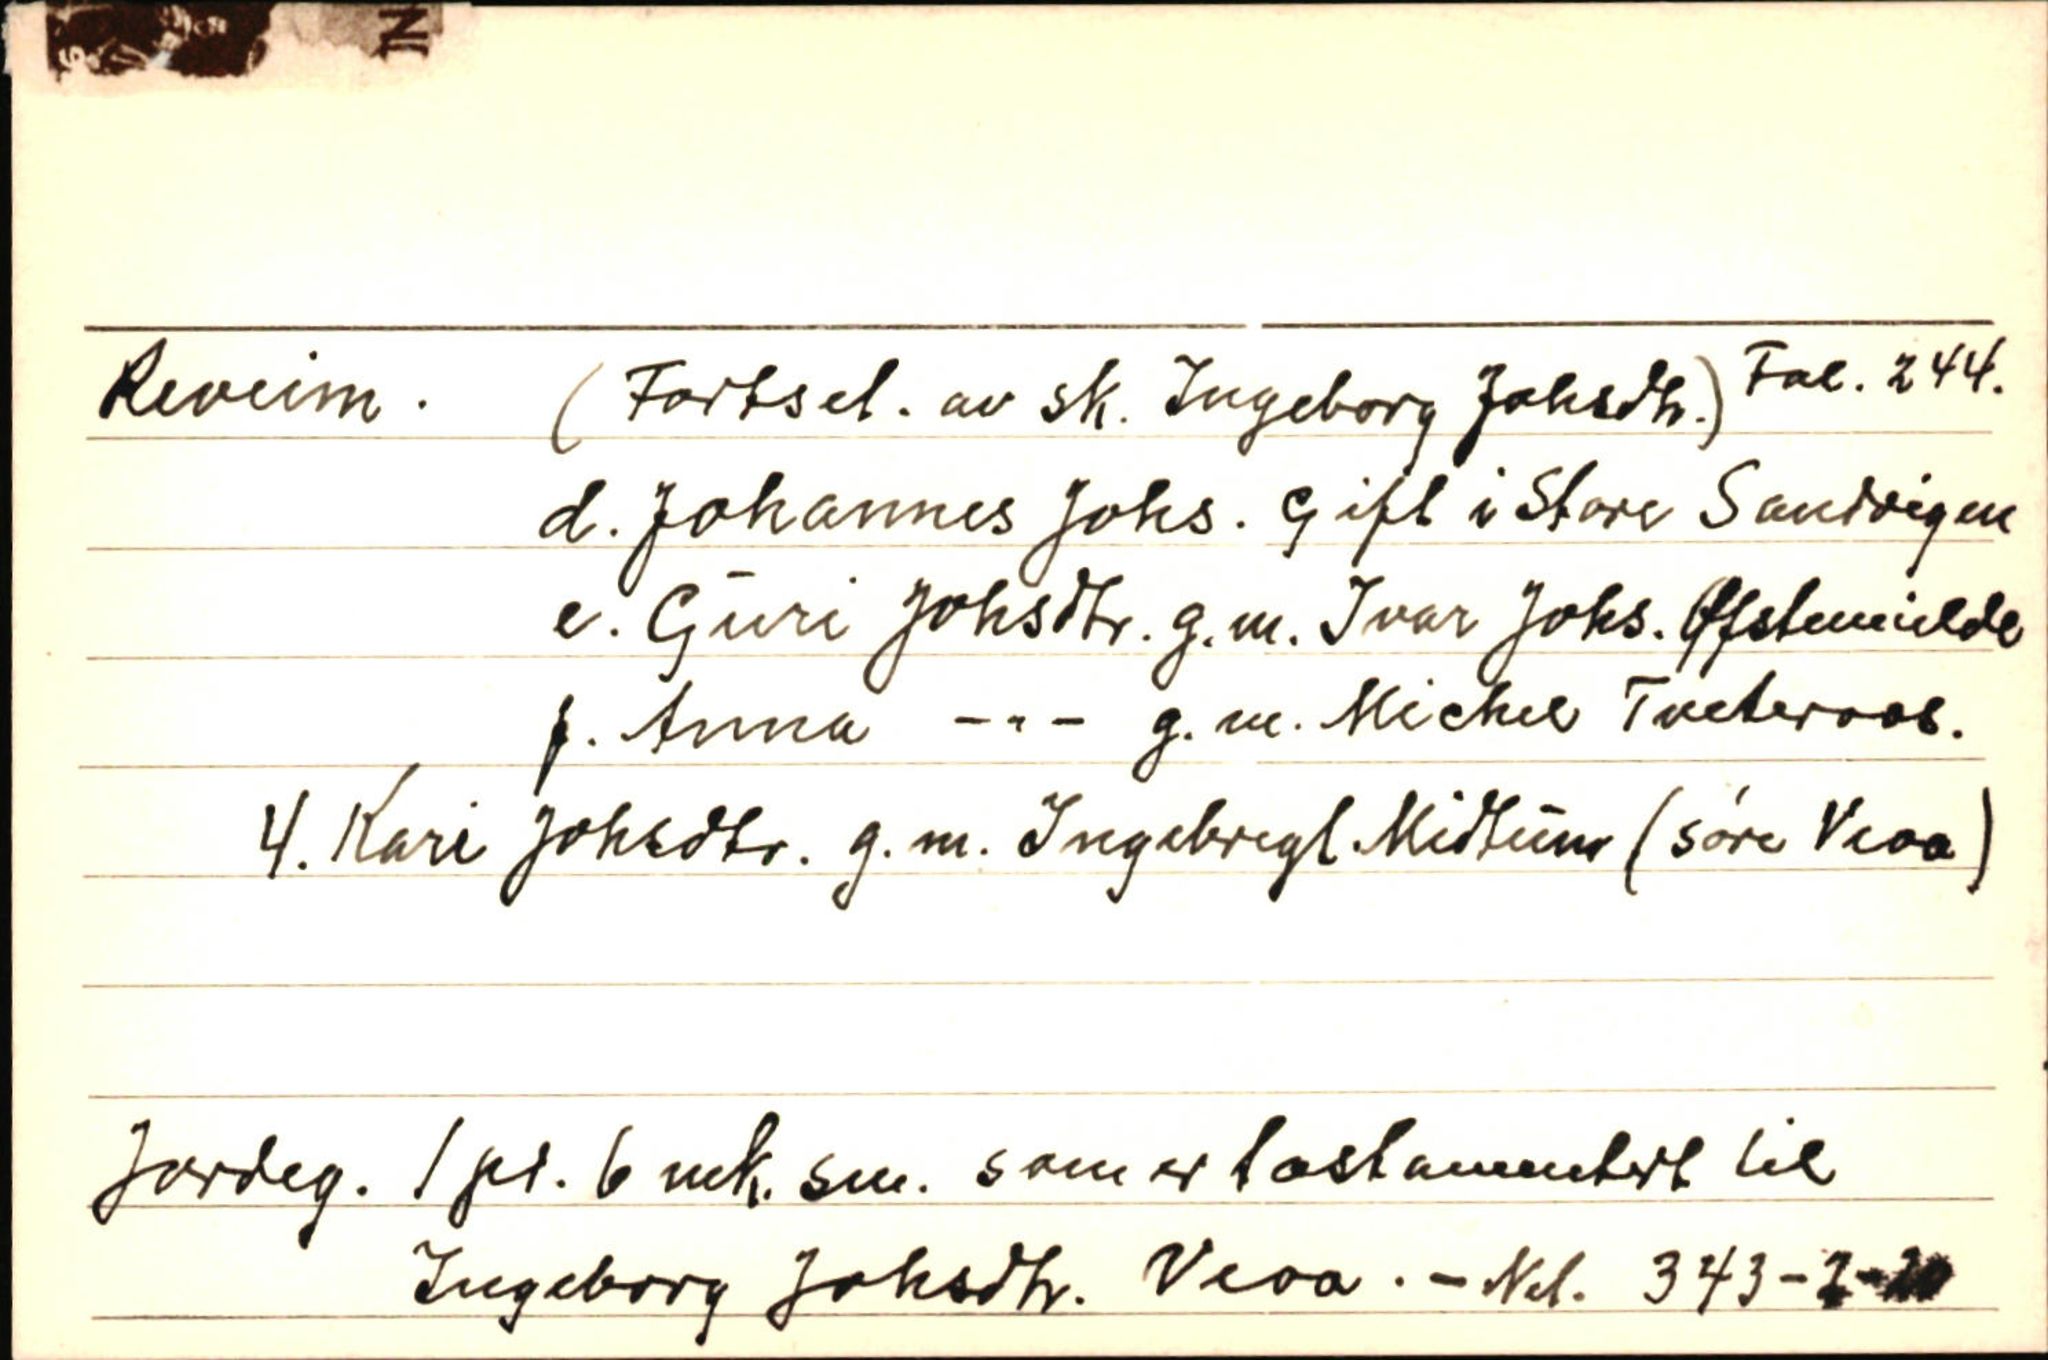 Reveim. (Fortset. av sk. Ingeborg Johsdtr.) Fol. 244.
d. Johannes Johs. Gift i Store Sandvigen
e. Guri Johsdtr. g.m. Ivar Johs. Øfstemielde
f. Anna -"- g.m. Michel Tveteraas.
4. Kari Johsdtr. g.m. Ingebregt Midtun (søre Veoa)
Jordeg. 1 pd. 6 mk. sm. som er testamentert til
Ingeborg Johsdtr. Veoa. - Net. 343-2-20